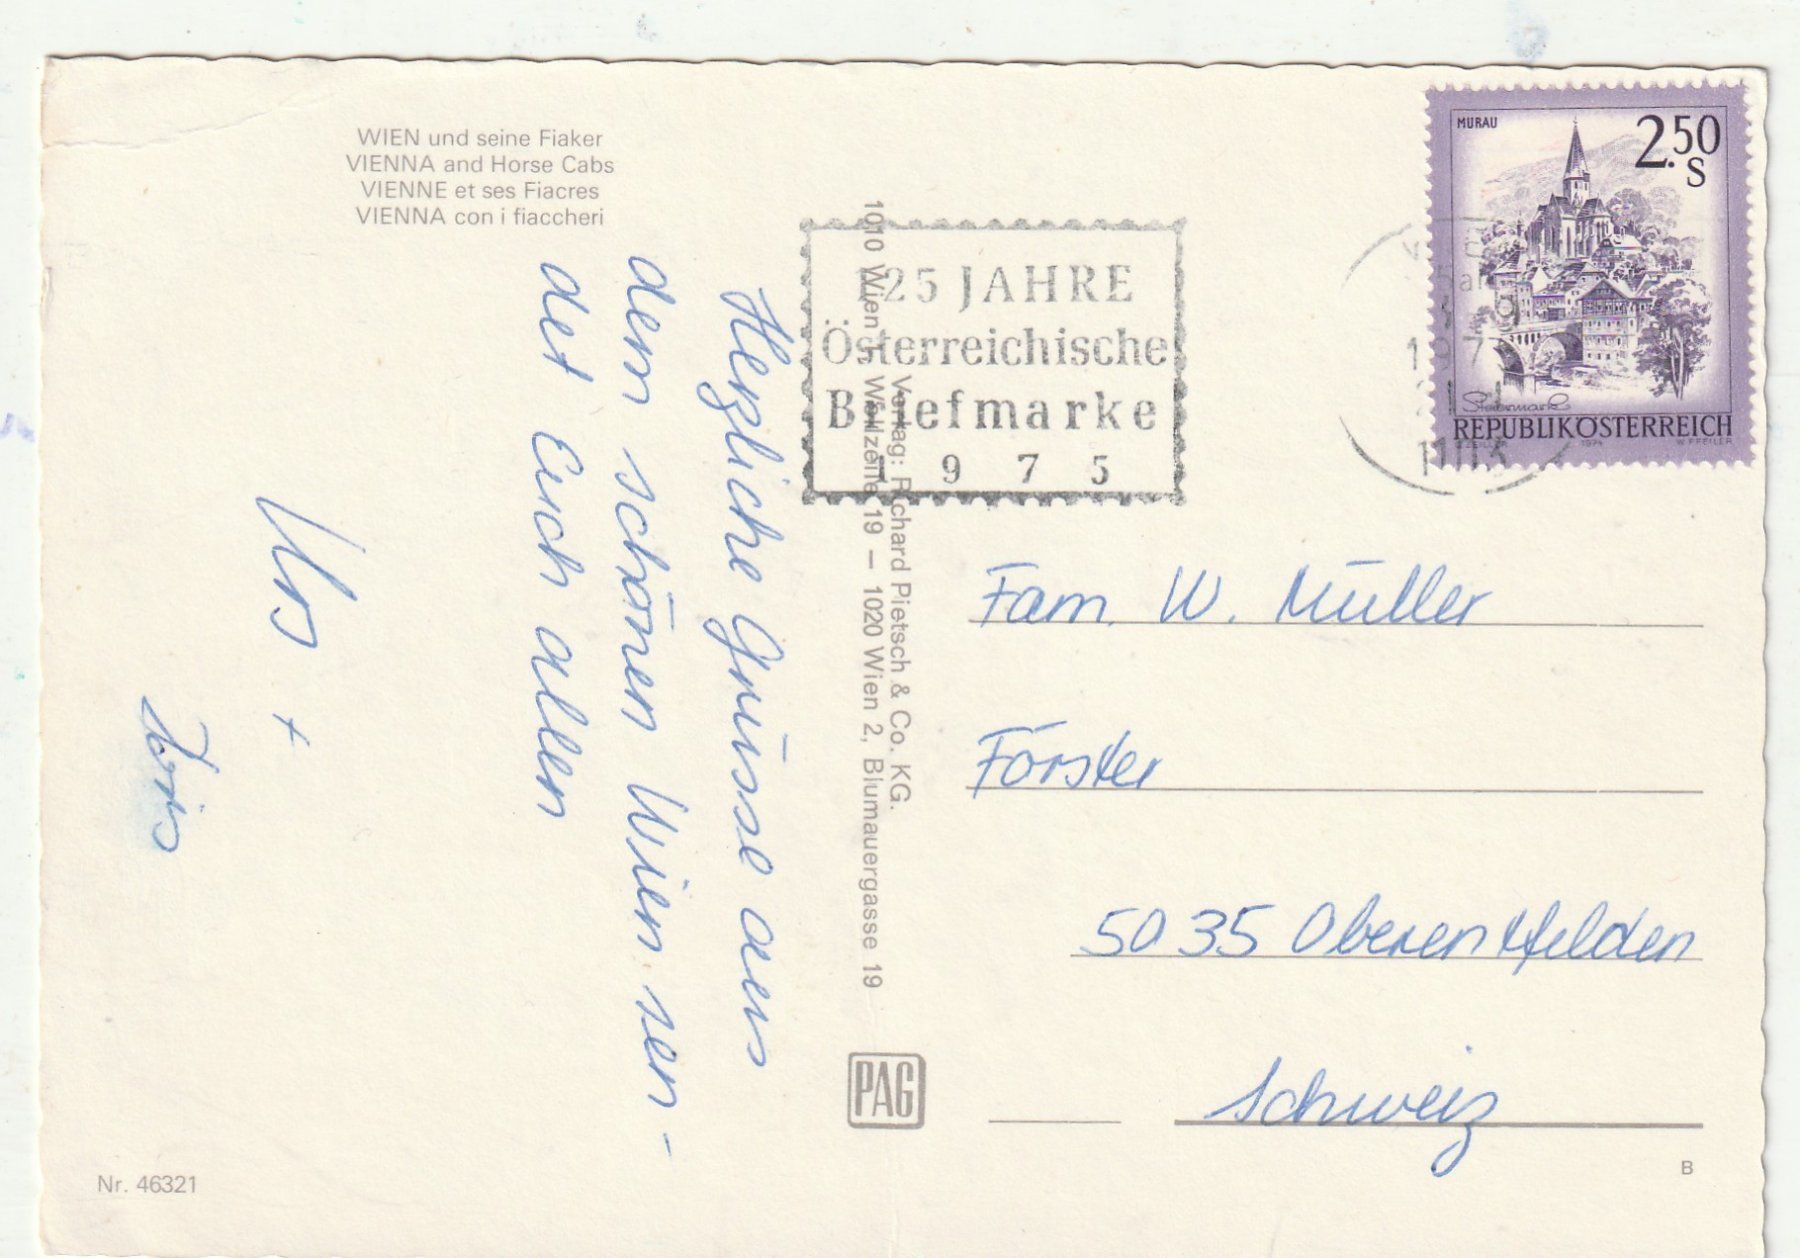 WIEN und seine Fiaker
VIENNA and Horse Cabs
VIENNE et ses Fiacres
VIENNA con i fiaccheri
Herzliche Grüsse aus
dem schönen Wien sen-
det Euch allen
Urs +
Doris
Nr. 46321
Verlag: Richard Pietsch & Co. KG.
1010 Wien 1, Wollzeile 19 – 1020 Wien 2, Blumauergasse 19
PAG
25 JAHRE
Österreichische
Briefmarke
1975
MURAU
2.50
S
Steiermark
REPUBLIK ÖSTERREICH
ZEILLER 1974 W. PFEILER
1103
Fam. W. Müller
Förster
5035 Oberentfelden
Schweiz
B